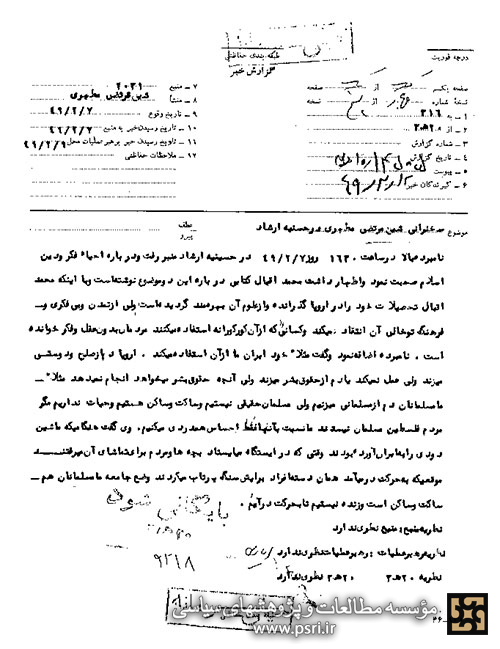 درجه فوریت
طبقه‌بندی حفاظتی
گزارش خبر
صفحه یکم از صفحه
نسخه شماره از نسخه
۱ ـ به ۳۱۶
۲ ـ از ۲۰هـ۲۰
۳ ـ شماره گزارش
۴ ـ تاریخ گزارش
۵ ـ پیوست
۶ ـ گیرندگان خبر
۷ ـ منبع ۲۰۳۱
۸ ـ منشأ شیخ مرتضی مطهری
۹ ـ تاریخ وقوع ۴۹/۲/۷
۱۰ ـ تاریخ رسیدن خبر به منبع ۴۹/۲/۷
۱۱ ـ تاریخ رسیدن خبر به رهبر عملیات محل ۴۹/۲/۹
۱۲ ـ ملاحظات حفاظتی
موضوع سخنرانی شیخ مرتضی مطهری در حسینیه ارشاد
عطف
پیرو
نامبرده بالا در ساعت ۱۶۳۰ روز ۴۹/۲/۷ در حسینیه ارشاد منبر رفت و درباره احیاء فکر دین
اسلام صحبت نمود و اظهار داشت محمد اقبال کتابی در باره این دو موضوع نوشته است و با اینکه محمد
اقبال تحصیلات خود را در اروپا گذرانده و از علوم آن بهره‌مند گردیده است ولی از تمدن و بی فکری و
فرهنگ توخالی آن انتقاد میکند و کسانی که از آن کورکورانه استفاده میکنند مردمان بدون عقل و فکر خوانده
است . نامبرده اضافه نمود و گفت مثلا" خود ایران ما از آن استفاده میکند . اروپا دم از صلح و دوستی
میزند ولی عمل نمیکند یا دم از حقوق بشر میزند ولی آنچه حقوق بشر میخواهد انجام نمیدهد مثلا" ـ
ما مسلمانان دم از مسلمانی میزنیم ولی مسلمان حقیقی نیستیم و ساکت و ساکن هستیم و حیات نداریم مگر
مردم فلسطین مسلمان نیستند ما نسبت به آنها فقط احساس همدردی میکنیم . وی گفت هنگامیکه ماشین
دودی را به ایران آورده بودند وقتی که در ایستگاه میایستاد بچه‌ها و مردم برای تماشای آن میرفتند
موقعیکه به حرکت در میآمد همان دسته افراد برایش سنگ پرتاب میکردند وضع جامعه ما مسلمانان هم ـ
ساکت و ساکن است و زنده نیستیم تا بحرکت درآییم .
نظریه منبع : منبع نظری ندارد
نظریه رهبر عملیات : رهبر عملیات نظری ندارد
نظریه ۲۰هـ۳ ۲۰هـ۳ نظری ندارد
بایگانی شود
۹۲۱۸
مؤسسه مطالعات و پژوهشهای سیاسی
www.psri.ir